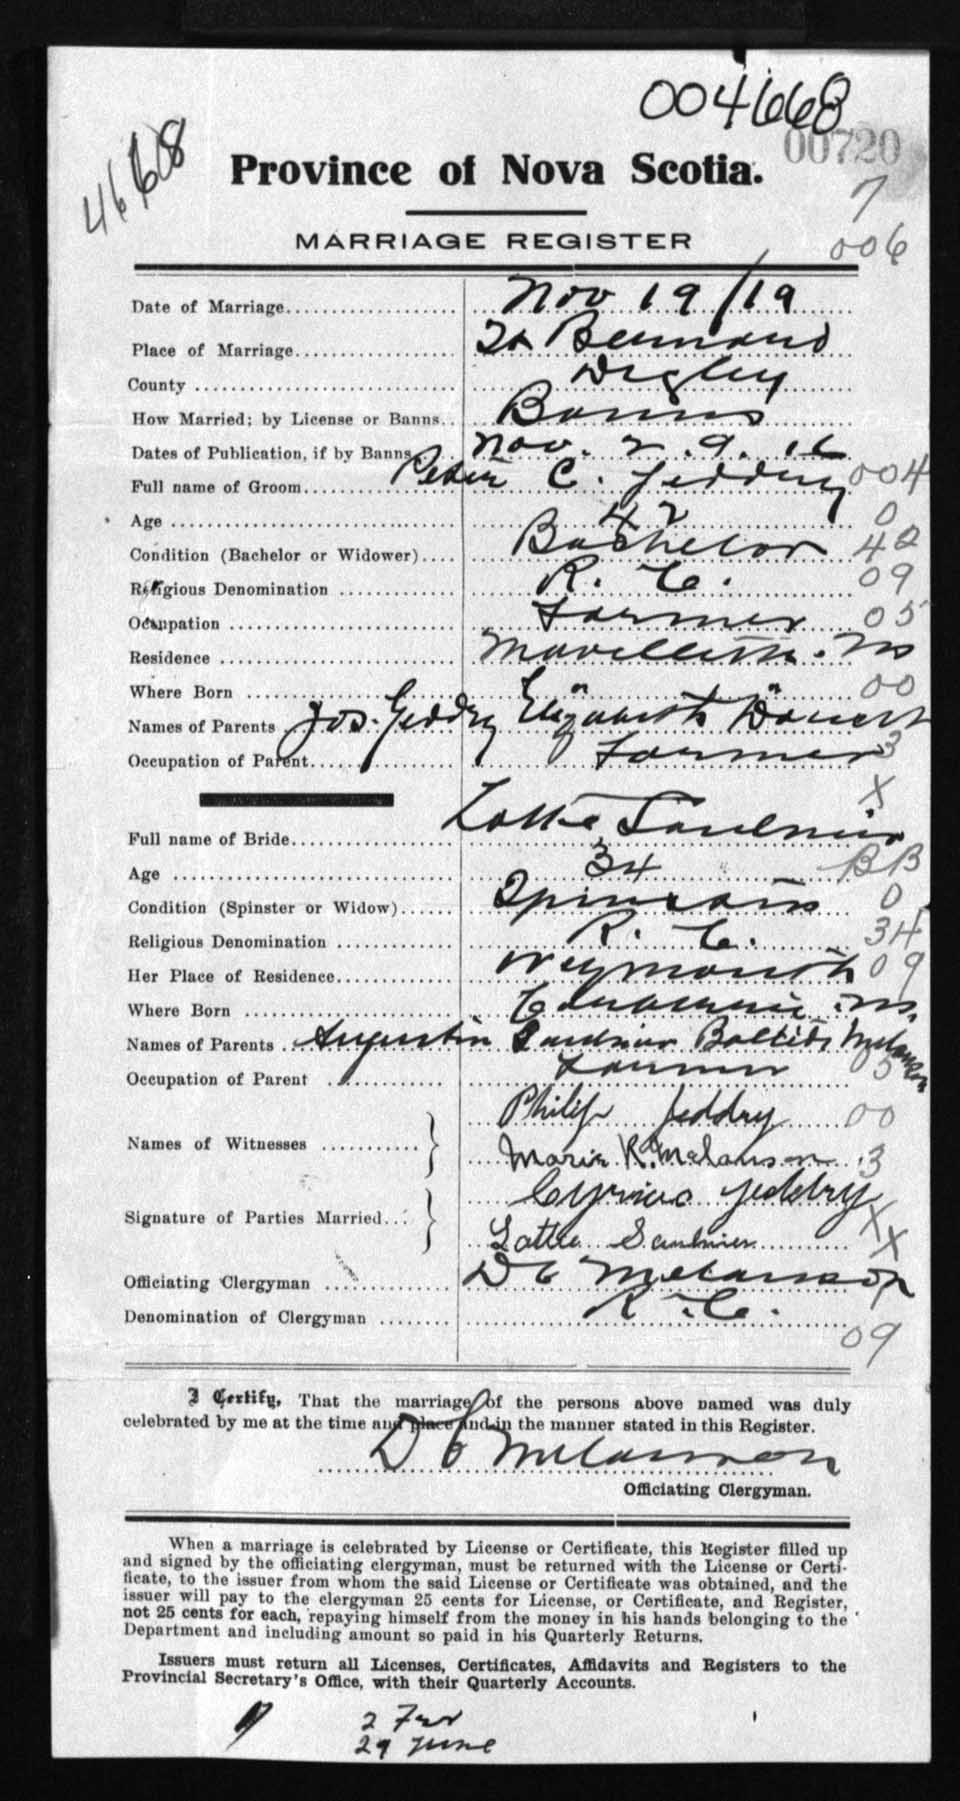 004668
4668
00720
Province of Nova Scotia.
7
MARRIAGE REGISTER
006
Date of Marriage Nov 19/19
Place of Marriage St Bernard
County Digby
How Married; by License or Banns Banns
Dates of Publication, if by Banns Nov. 2. 9. 16
Full name of Groom Peter C. Jeddry 004
Age 42 0
Condition (Bachelor or Widower) Bachelor 42
Religious Denomination R. C. 09
Occupation Farmer 05
Residence Mavillette. Ns
Where Born " " 00
Names of Parents Jos. Jeddry Elizabeth
Occupation of Parent Farmer 3
X
Full name of Bride Lottie Saulnier
Age 34 BB
Condition (Spinster or Widow) Spinster 0
Religious Denomination R. C. 34
Her Place of Residence Weymouth 09
Where Born Ns.
Names of Parents Augustin Saulnier Melanson
Occupation of Parent Farmer 5
Names of Witnesses Philip Jeddry 00
Marie K. Melanson 3
Signature of Parties Married Jeddry
Lottie Saulnier XX
Officiating Clergyman D C Melanson
Denomination of Clergyman R. C.
09
I Certify, That the marriage of the persons above named was duly
celebrated by me at the time and place and in the manner stated in this Register.
D C Melanson
Officiating Clergyman.
When a marriage is celebrated by License or Certificate, this Register filled up
and signed by the officiating clergyman, must be returned with the License or Certi-
ficate, to the issuer from whom the said License or Certificate was obtained, and the
issuer will pay to the clergyman 25 cents for License, or Certificate, and Register,
not 25 cents for each, repaying himself from the money in his hands belonging to the
Department and including amount so paid in his Quarterly Returns.
Issuers must return all Licenses, Certificates, Affidavits and Registers to the
Provincial Secretary's Office, with their Quarterly Accounts.
2
29 June